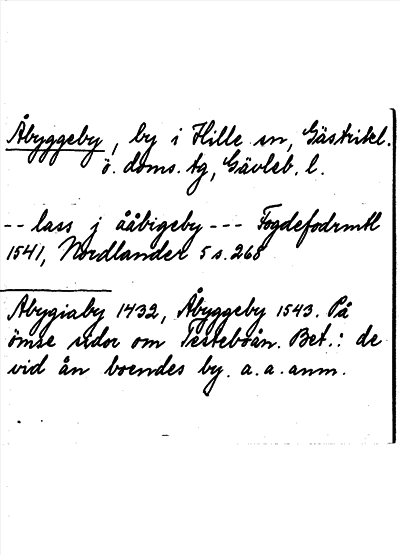 Åbyggeby, by i Hille sn, Gästrikl.
ö. doms. tg, Gävleb. l.
-- lass j ååbigeby --- Fogdefodrmtl
1541, Nordlander 5 s. 268
Abygiaby 1432, Åbyggeby 1543. På
ömse sidor om Testeboån. Bet.: de
vid ån boendes by. a. a. anm.